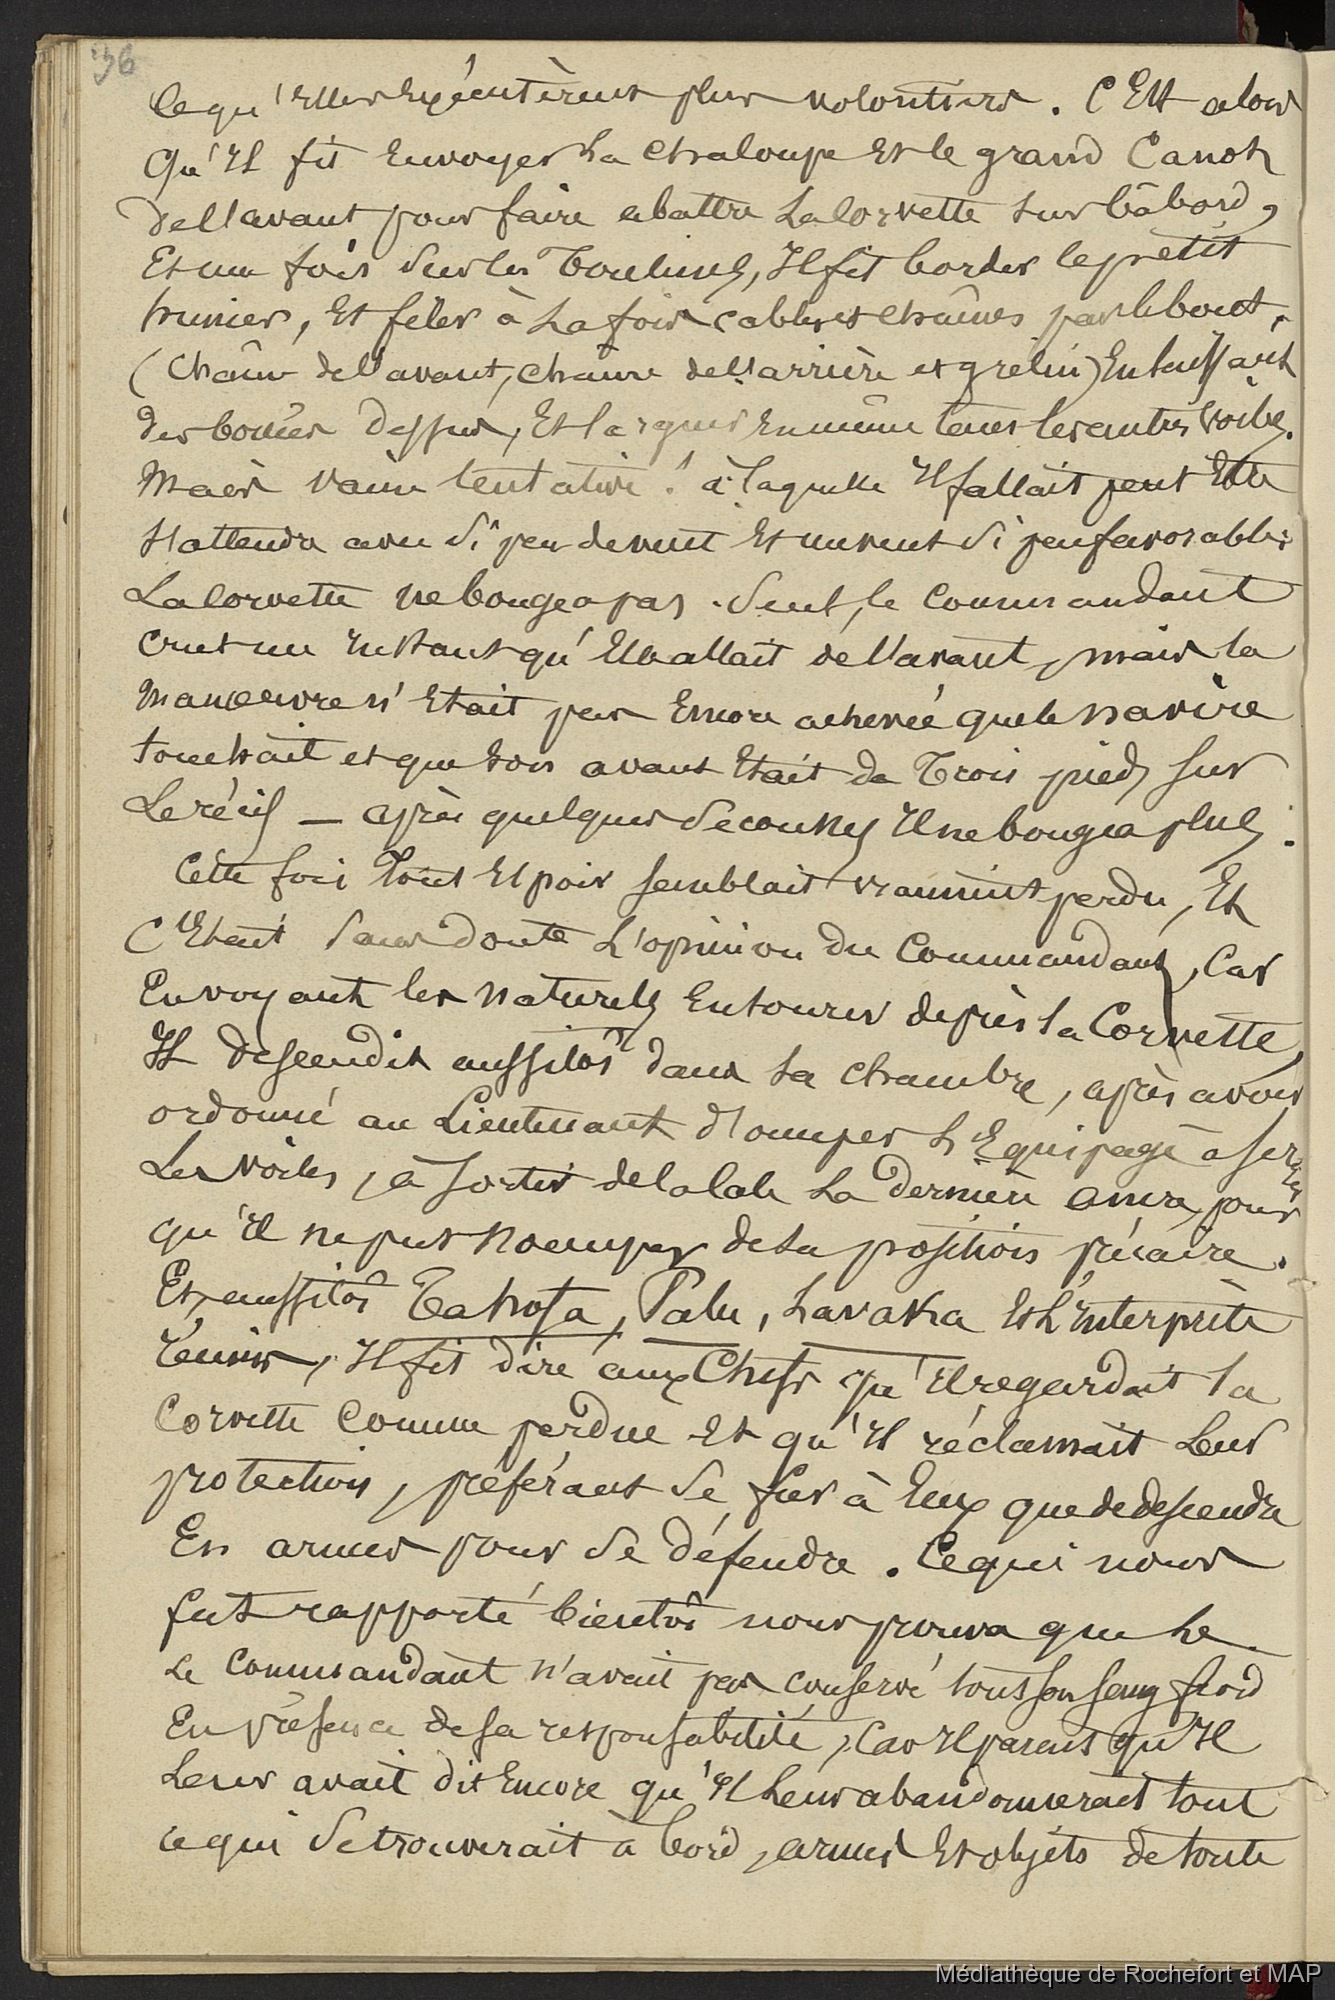 36
Ce qu'Elles Exécutèrent plus volontiers. C'Est alors
Qu'Il fit Envoyer la chaloupe Et le grand Canot
de l'avant pour faire abattre La Corvette sur bâbord,
Et une fois sur les Toulines, Il fit border le petit
hunier, Et filer à la fois cables et chaînes par le bout,
(chaîne de l'avant, chaîne de l'arrière et grelin) En laissant
des bouées dessus, Et larguer En même tems les autres voiles.
Mais vaine tentative! à laquelle Il fallait peut Etre
s'attendre avec si peu de vent Et un vent si peu favorable.
La Corvette ne bougea pas. Seul, le Commandant
crut un Instant qu'Elle allait de l'avant, mais la
Manoeuvre n'Etait pas Encore achevée que le navire
touchait et que son avant Etait de Trois pieds sur
Le récif — après quelques secousses Il ne bougea plus.
Cette fois Tout Espoir semblait vraiment perdu, Et
C'Etait sans doute L'opinion du Commandant, Car
En voyant les naturels Entourer de près la Corvette,
Il descendit aussitôt dans sa chambre, après avoir
ordonné au Lieutenant d'occuper L'Equipage à serrer
Les voiles, à sortir de la cale La dernière ancre, pour
qu'Il ne put s'occuper de sa position précaire.
Et, aussitôt Tahofa, Palu, Lavaka Et L'Interprète
réunis, Il fit dire aux Chefs qu'Il regardait la
Corvette Comme perdue Et qu'Il réclamait Leur
protection, préférant se fier à Eux que de descendre
En armes pour se défendre. Ce qui nous
fut rapporté bientôt nous prouva que Le
Le Commandant n'avait pas conservé tout son sang froid
En présence de sa responsabilité, Car Il parait qu'Il
Leur avait dit Encore qu'Il Leur abandonnerait tout
ce qui se trouverait à bord, armes Et objets de toute
Médiathèque de Rochefort et MAP